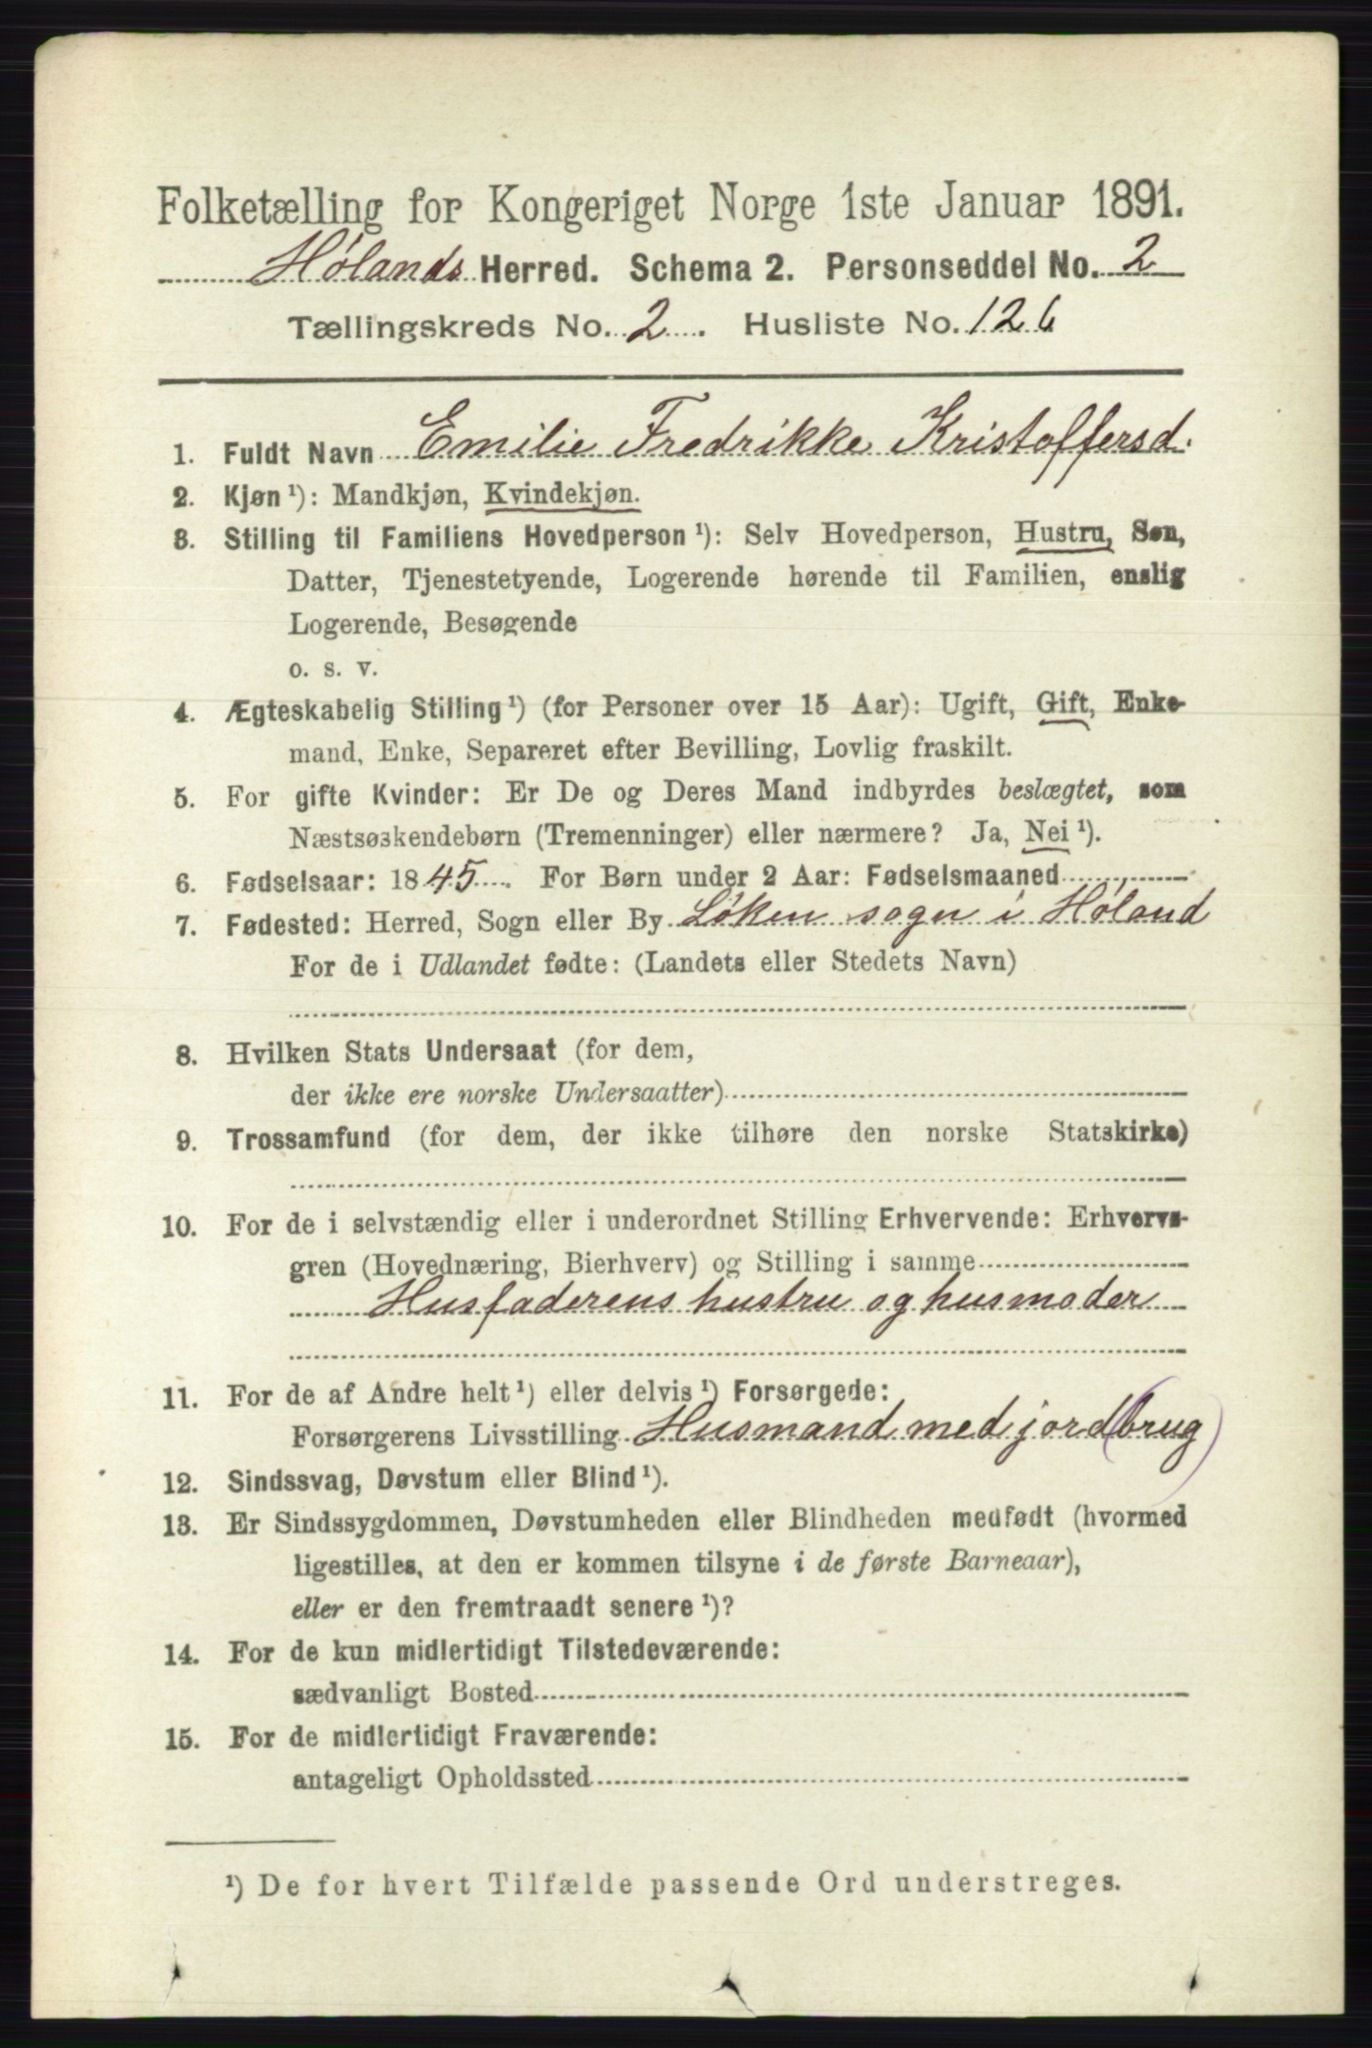 Folketælling for Kongeriget Norge 1ste Januar 1891.
Hølands Herred. Schema 2. Personseddel No. 2
Tællingskreds No. 2. Husliste No. 126
1. Fuldt Navn Emilie Fredrikke Kristoffersd.
2. Kjøn ¹): Mandkjøn, Kvindekjøn.
3. Stilling til Familiens Hovedperson ¹): Selv Hovedperson, Hustru, Søn,
Datter, Tjenestetyende, Logerende hørende til Familien, enslig
Logerende, Besøgende
o. s. v.
4. Ægteskabelig Stilling ¹) (for Personer over 15 Aar): Ugift, Gift, Enke-
mand, Enke, Separeret efter Bevilling, Lovlig fraskilt.
5. For gifte Kvinder: Er De og Deres Mand indbyrdes beslægtet, som
Næstsøskendebørn (Tremenninger) eller nærmere? Ja, Nei ¹).
6. Fødselsaar: 1845. For Børn under 2 Aar: Fødselsmaaned
7. Fødested: Herred, Sogn eller By Løken sogn i Høland
For de i Udlandet fødte: (Landets eller Stedets Navn)
8. Hvilken Stats Undersaat (for dem,
der ikke ere norske Undersaatter)
9. Trossamfund (for dem, der ikke tilhøre den norske Statskirke)
10. For de i selvstændig eller i underordnet Stilling Erhvervende: Erhvervs-
gren (Hovednæring, Bierhverv) og Stilling i samme
Husfaderens hustru og husmoder
11. For de af Andre helt ¹) eller delvis ¹) Forsørgede:
Forsørgerens Livsstilling Husmand med jord(brug)
12. Sindssvag, Døvstum eller Blind ¹).
13. Er Sindssygdommen, Døvstumheden eller Blindheden medfødt (hvormed
ligestilles, at den er kommen tilsyne i de første Barneaar),
eller er den fremtraadt senere ¹)?
14. For de kun midlertidigt Tilstedeværende:
sædvanligt Bosted
15. For de midlertidigt Fraværende:
antageligt Opholdssted
¹) De for hvert Tilfælde passende Ord understreges.